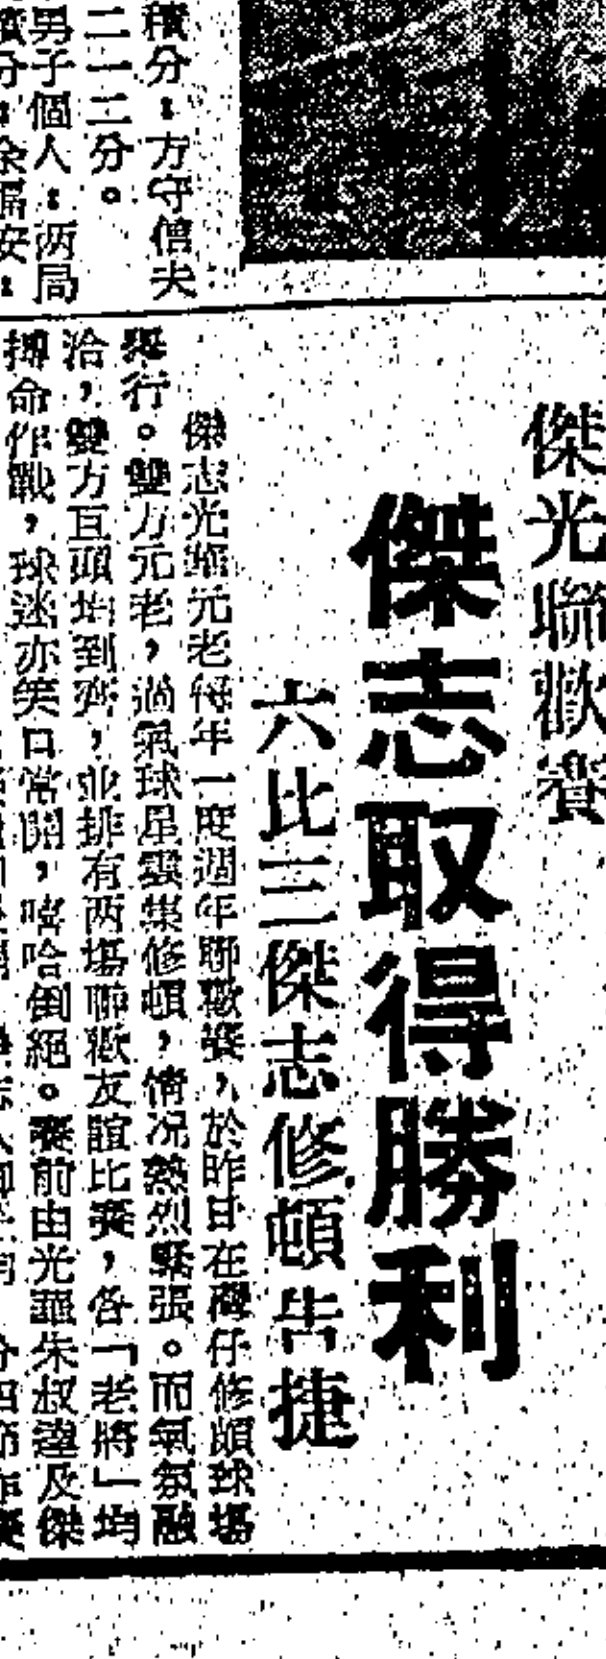 積分：方守信夫
二一二分。
男子個人：两局
傑光聯歡賽
傑志取得勝利
六比三傑志修頓告捷
傑志光華元老每年一度週年聯歡賽，於昨日在灣仔修頓球場
舉行。雙方元老，過氣球星雲集修頓，情况熱烈緊張。而氣氛融
洽，雙方巨頭均到齊，並排有两場聯歡友誼比賽，各「老將」均
搏命作戰，球迷亦笑口常開，嘻哈倒絕。賽前由光華朱叔達及傑